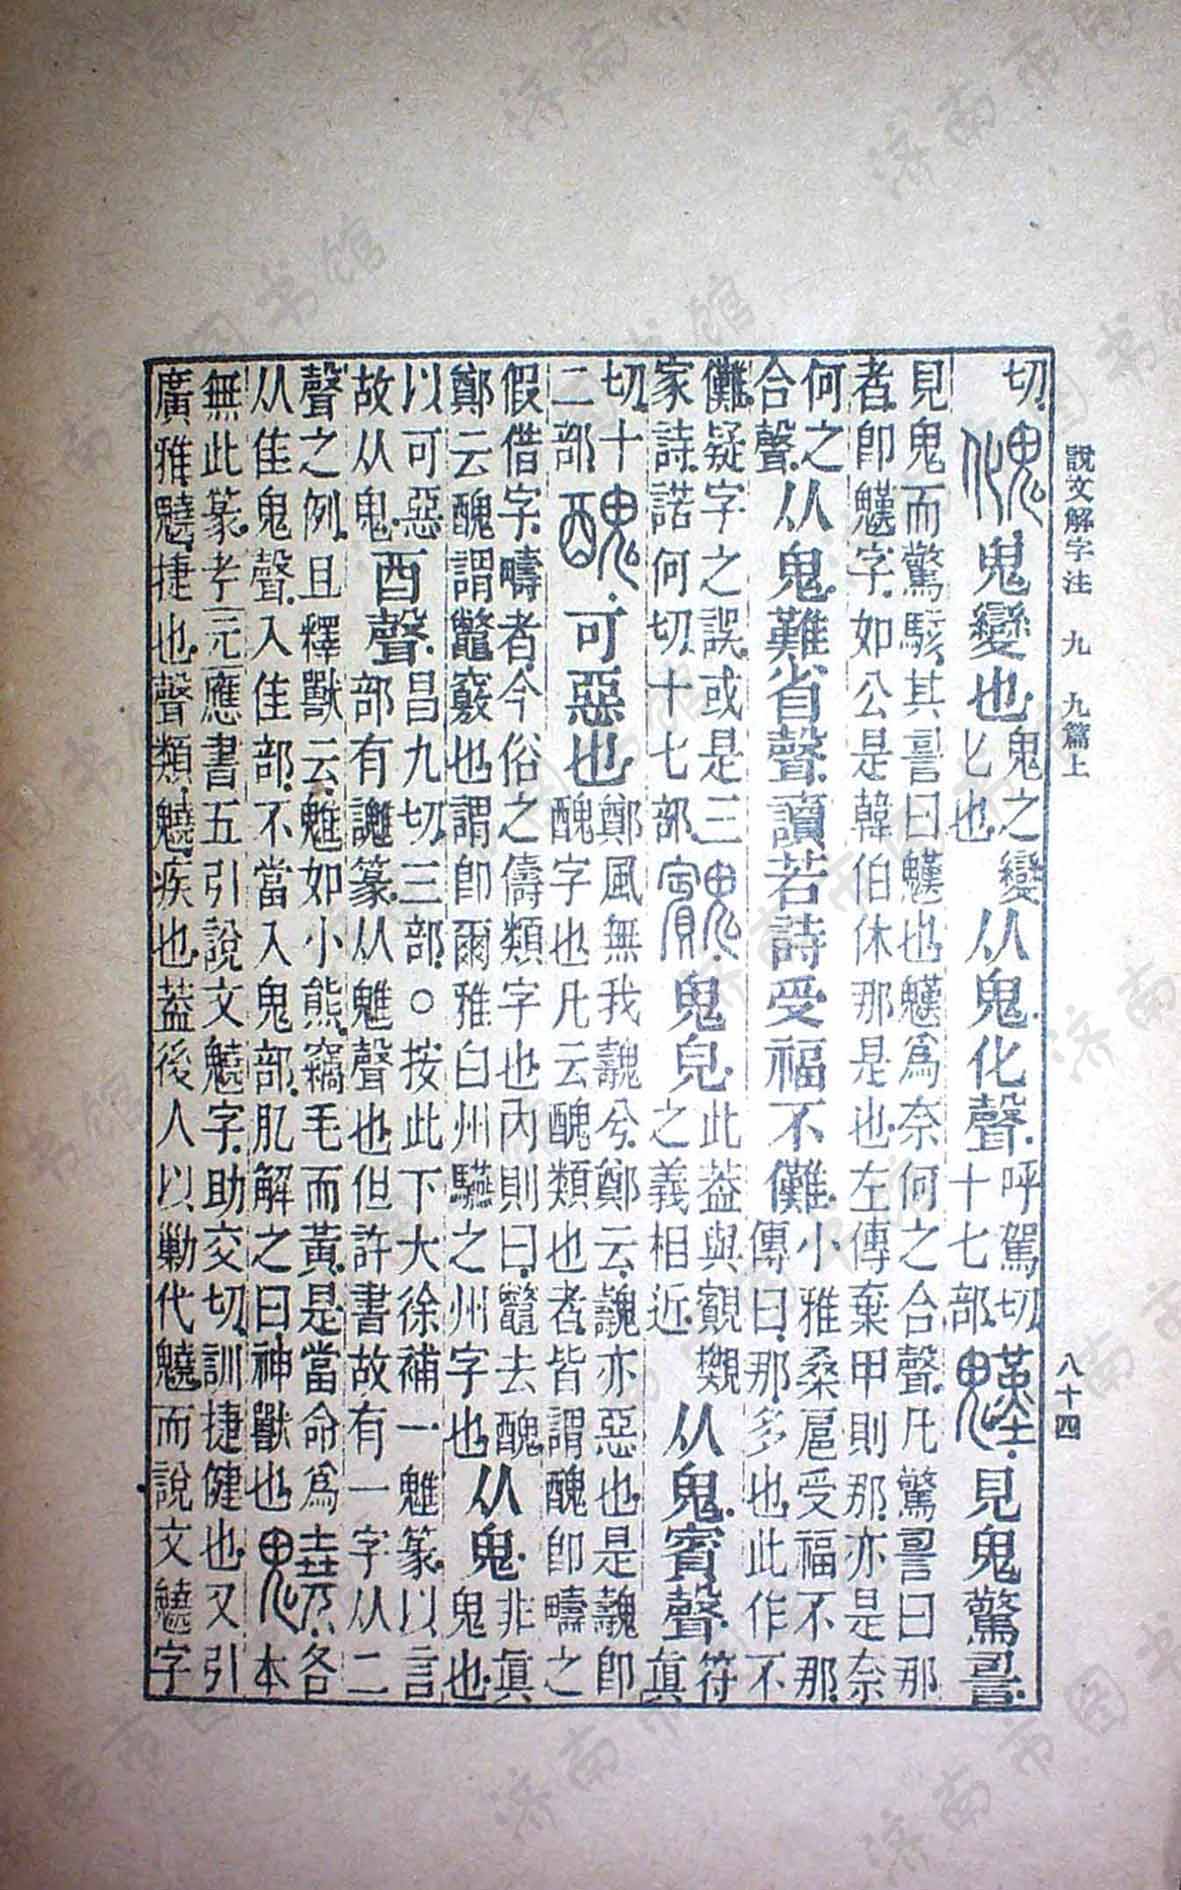 說文解字注 九 九篇上 八十四
切。
魤 鬼變也。
鬼之變
匕也。
从鬼化聲。
呼駕切。
十七部。
見鬼驚䛐。
見鬼而驚駭。其䛐曰𩴓也。𩴓爲奈何之合聲。凡驚䛐曰那
者。卽𩴓字。如公是韓伯休那是也。左傳棄甲則那。亦是奈
何之
合聲。
从鬼難省聲。讀若詩受福不儺。
小雅桑扈受福不那。
傳曰。那多也。此作不
儺。疑字之誤。或是三
家詩。諾何切。十七部。
鬼皃。
此葢與覾
之義相近。
从鬼賓聲。
符眞
切。十
二部。
醜 可惡也。
鄭風無我魗兮。鄭云。魗亦惡也。是魗卽
醜字也。凡云醜類也者。皆謂醜卽疇之
假借字。疇者。今俗之儔類字也。內則曰。鼈去醜。
鄭云醜謂鼈竅也。謂卽爾雅白州驠之州字也。
从鬼。
非眞
鬼也。
以可惡
故从鬼。
酉聲。
昌九切。三部。○按此下大徐補一魋篆。以言
部有𧬨篆。从魋聲也。但許書故有一字从二
聲之例。且釋獸云。魋如小熊。竊毛而黃。是當命爲
从隹鬼聲。入隹部。不當入鬼部。肊解之曰神獸也。
䰫
各
本
無此篆。考元應書五引說文䰫字。助交切。訓捷健也。又引
廣雅䰫捷也。聲類䰫疾也。葢後人以勦代䰫。而說文䰫字